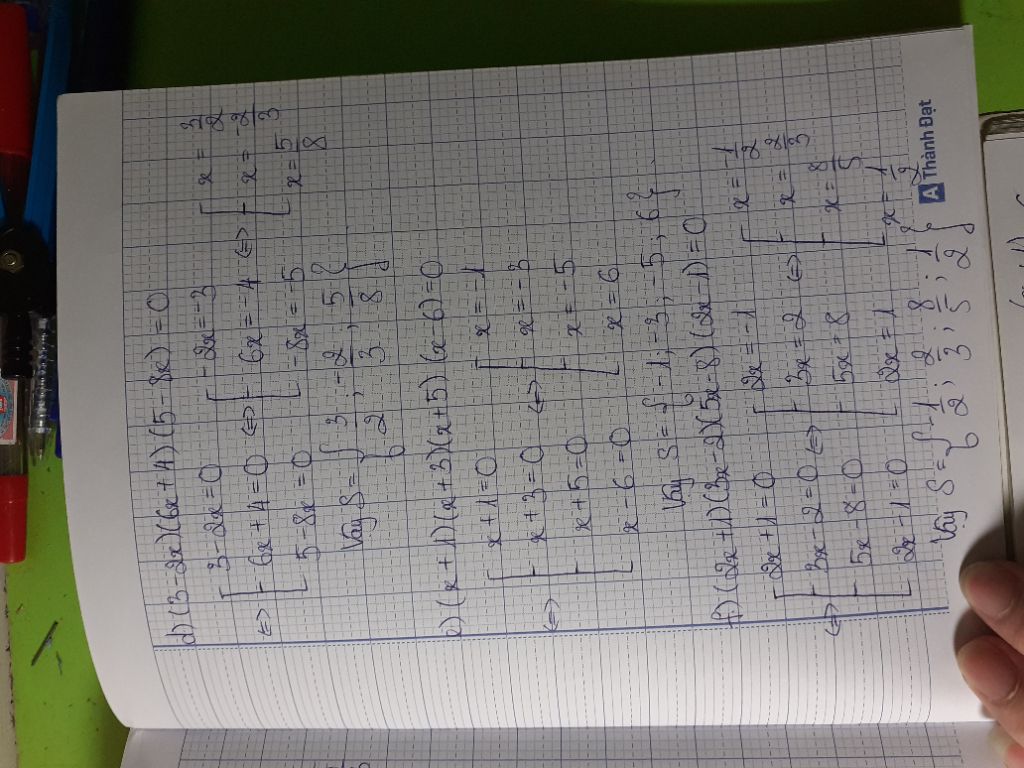 d) (3 - 2x)(6x + 4)(5 - 8x) = 0
⇔ [ 3 - 2x = 0 ; 6x + 4 = 0 ; 5 - 8x = 0 ⇔ [ -2x = -3 ; 6x = -4 ; -8x = -5 ⇔ [ x = 3/2 ; x = -2/3 ; x = 5/8
Vậy S = { 3/2 ; -2/3 ; 5/8 }
e) (x + 1)(x + 3)(x + 5)(x - 6) = 0
⇔ [ x + 1 = 0 ; x + 3 = 0 ; x + 5 = 0 ; x - 6 = 0 ⇔ [ x = -1 ; x = -3 ; x = -5 ; x = 6
Vậy S = { -1 ; -3 ; -5 ; 6 }
f) (2x + 1)(3x - 2)(5x - 8)(2x - 1) = 0
⇔ [ 2x + 1 = 0 ; 3x - 2 = 0 ; 5x - 8 = 0 ; 2x - 1 = 0 ⇔ [ 2x = -1 ; 3x = 2 ; 5x = 8 ; 2x = 1 ⇔ [ x = -1/2 ; x = 2/3 ; x = 8/5 ; x = 1/2
Vậy S = { -1/2 ; 2/3 ; 8/5 ; 1/2 }
Thành Đạt